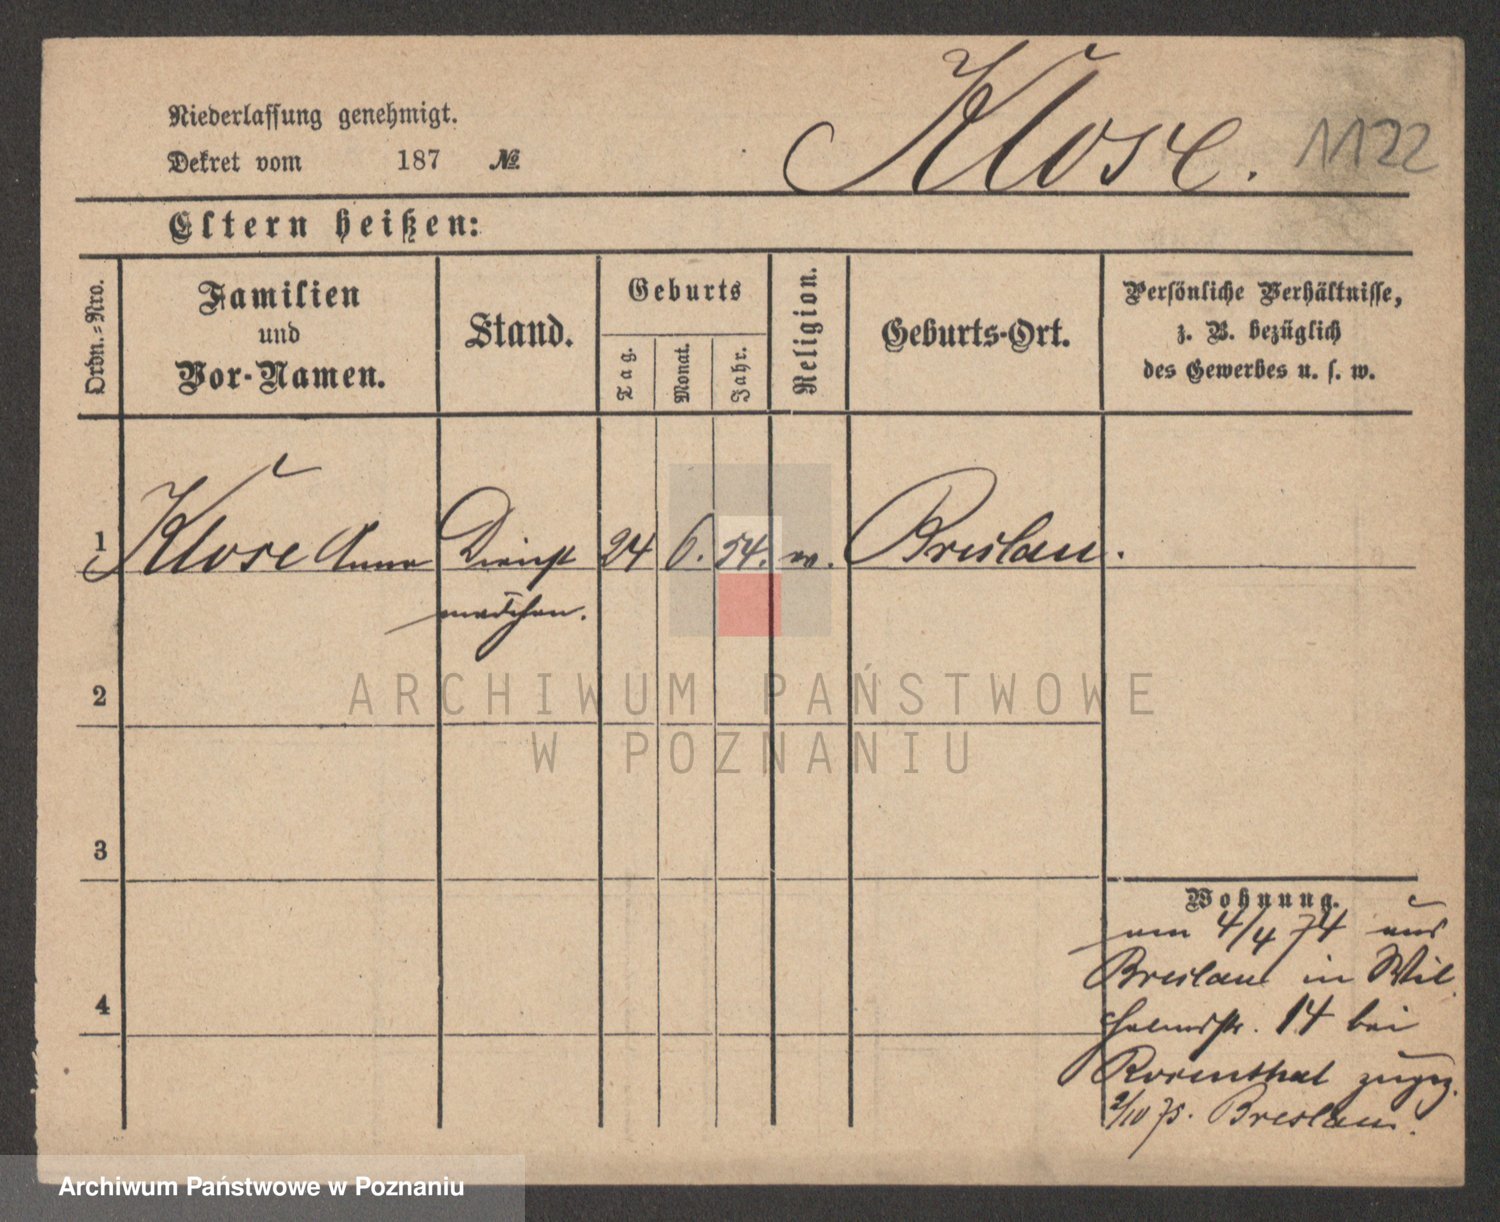 Niederlassung genehmigt.
Dekret vom 187 №
Klose.
1122
Eltern heißen:
Ordn.-Nro.
Familien
und
Vor-Namen.
Stand.
Geburts
Tag.
Monat.
Jahr.
Religion.
Geburts-Ort.
Persönliche Verhältnisse,
z. B. bezüglich
des Gewerbes u. s. w.
1 Klose Anna Dienst 24 6. 54. Breslau.
mädchen.
2
ARCHIWUM PAŃSTWOWE
W POZNANIU
3
Wohnung.
4/4 74 aus
Breslau in Wil
4
helmstr. 14 bei
Rosenthal zugez.
2/IV 75. Breslau.
Archiwum Państwowe w Poznaniu